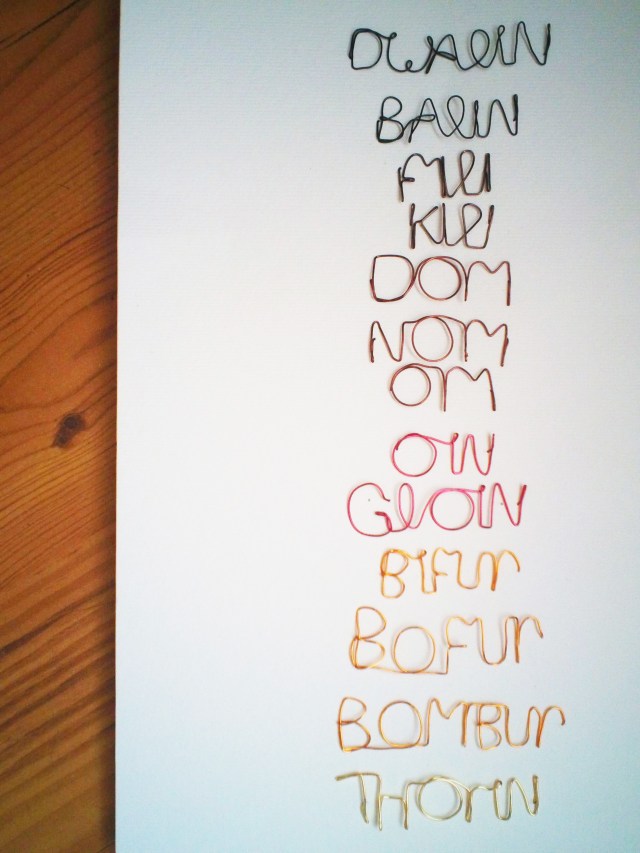 DWALIN
BALIN
FILI
KILI
DORI
NORI
ORI
OIN
GLOIN
BIFUR
BOFUR
BOMBUR
THORIN